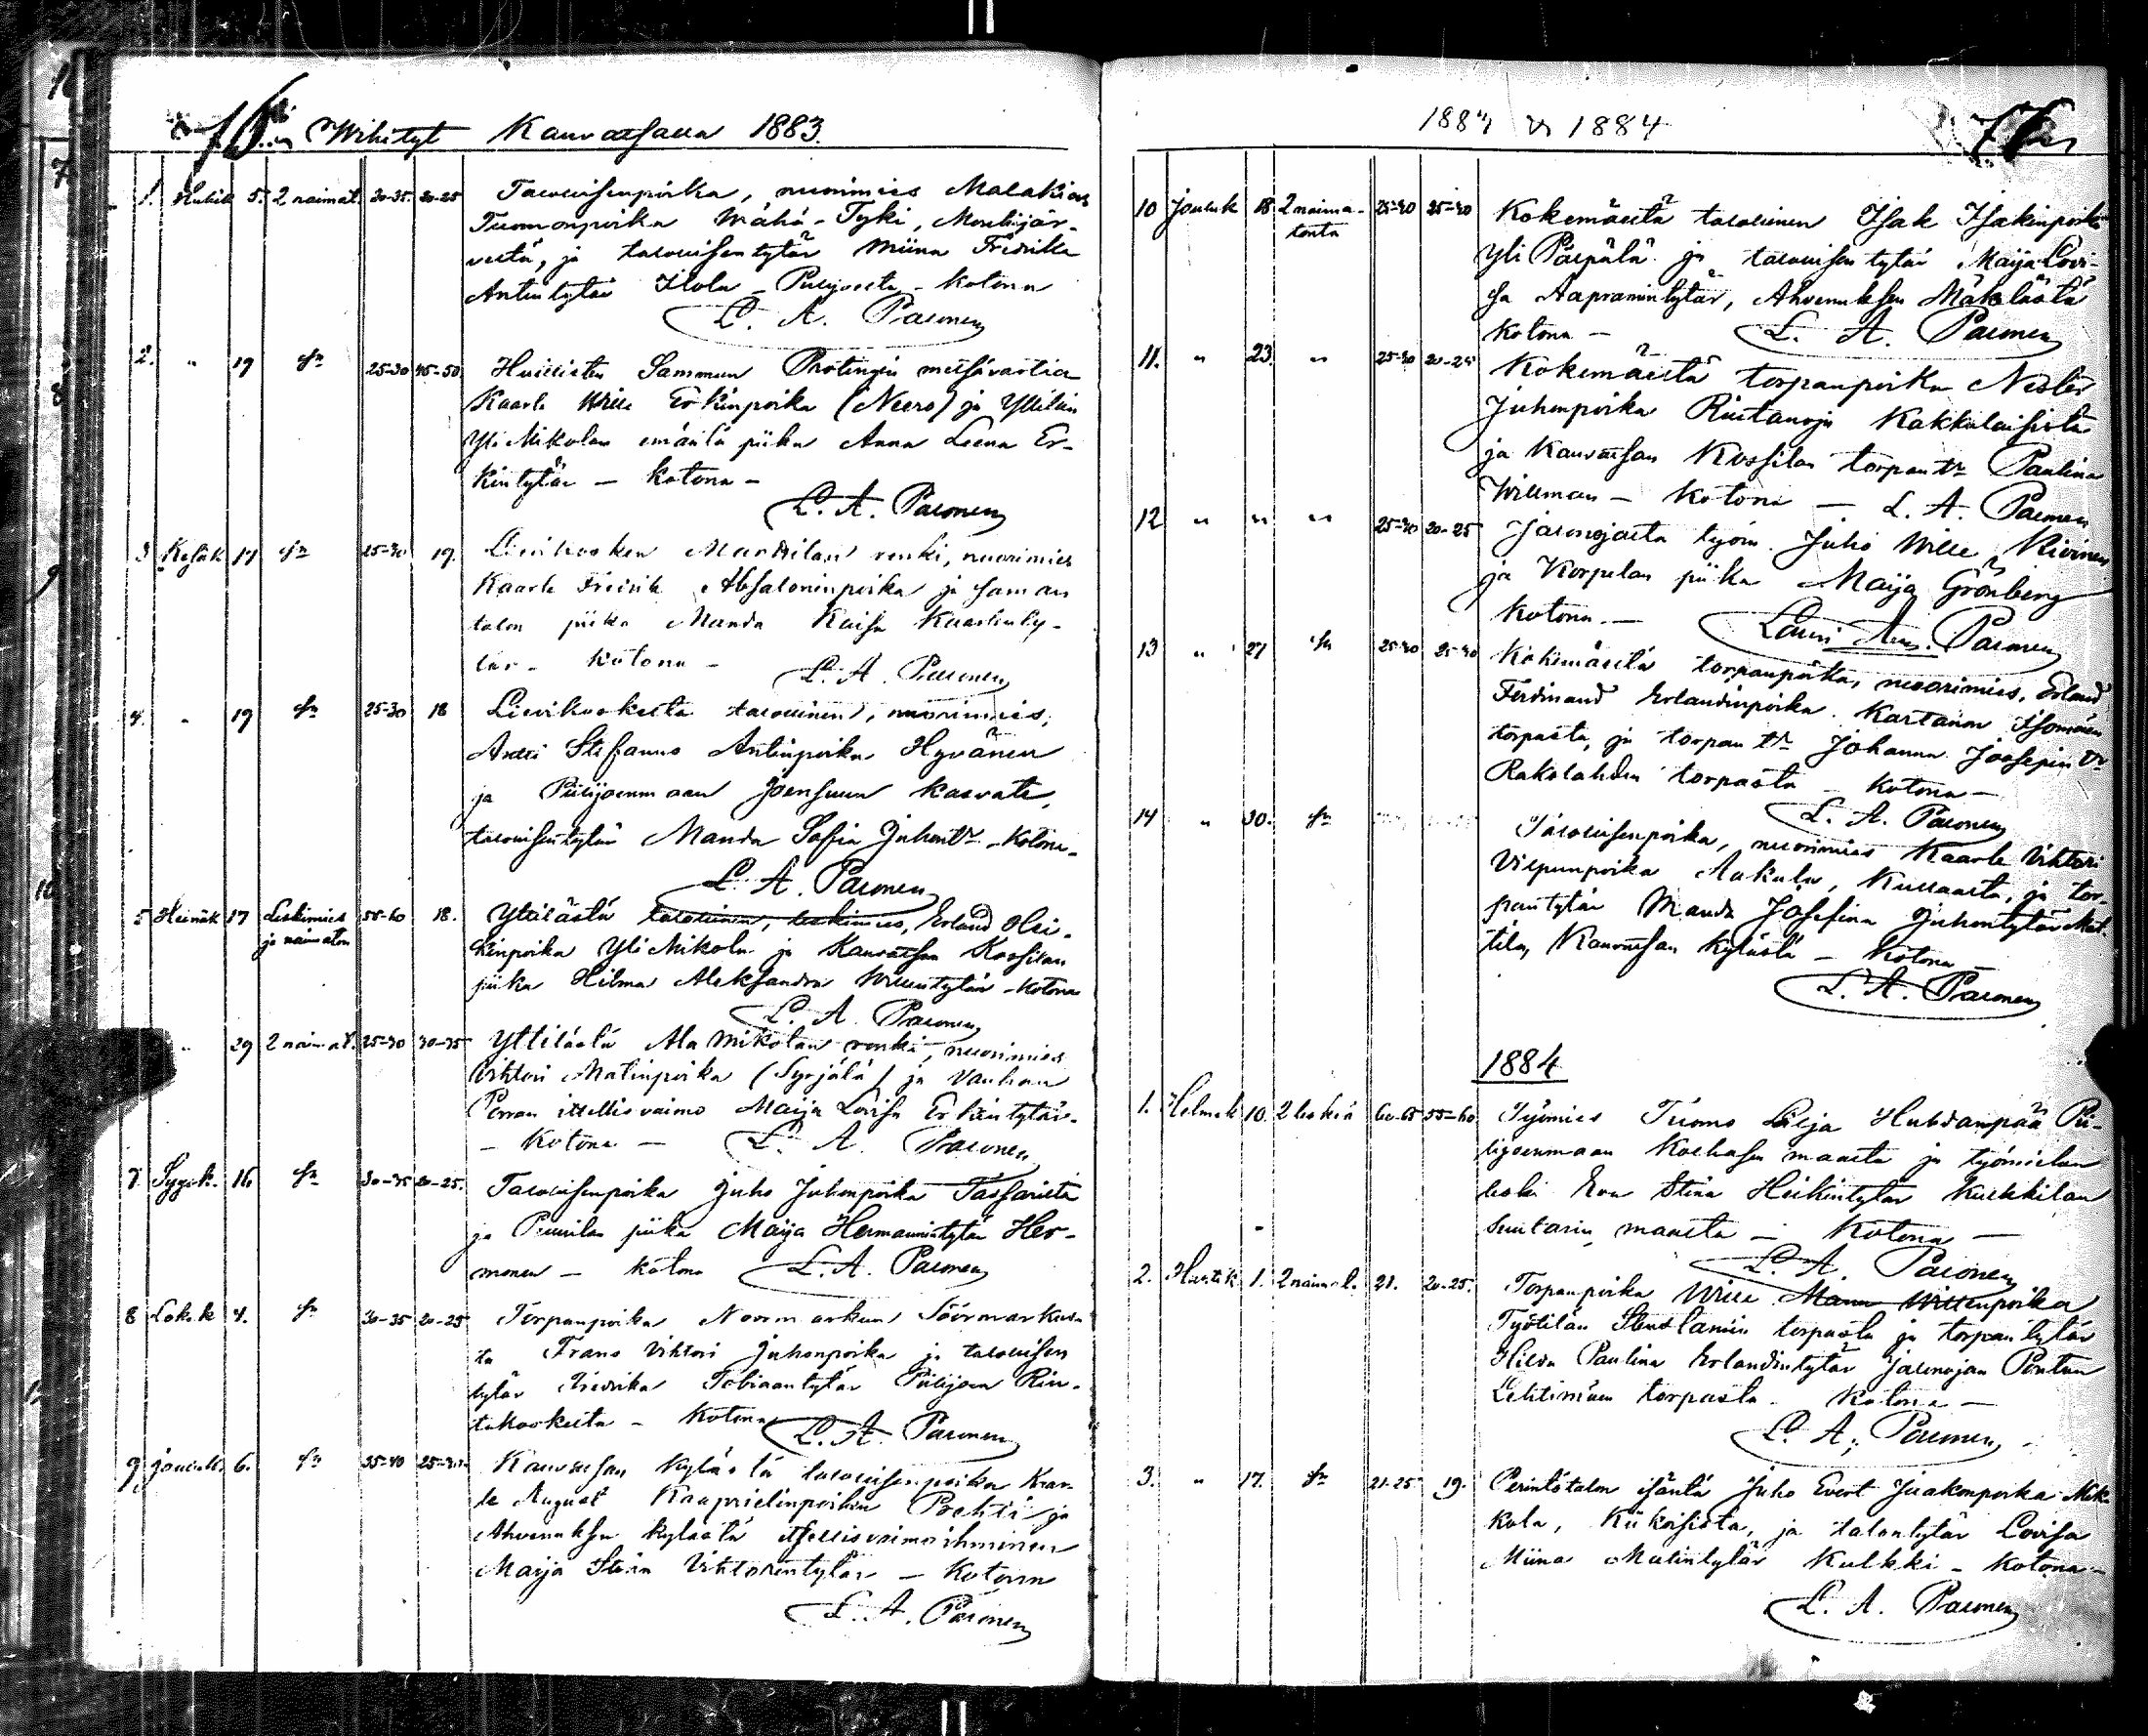 Wihityt Kauvatsalla 1883.
1. Huhtik 5. 2 naimat. 30-35. 20-25 Talollisenpoika, nuorimies Malakias
Tuomonpoika Wähä-Tyki, Mouhijär-
veltä, ja talollisentytär Miina Fredrika
Antintytär Ilola - Piilijoelta - Kotona
L. A. Palonen
2. " 19 sn 25-30 45-50 Huittisten Sammun metsävartia
Kaarle Wille Erkinpoika (Neero) ja Yttilän
Yli Mikolan emäntä piika Anna Leena Er-
kintytär - kotona -
L. A. Palonen
3 Kesäk 17 sn 25-30 19. Lievikosken Manttilan renki, nuorimies
Kaarle Fredrik Absaloninpoika ja saman
talon piika Manda Kaisa Kaarlenty-
tär - kotona -
L. A. Palonen
4. " 19 sn 25-30 18 Lievikoskelta talollinen, nuorimies,
Antti Stefanus Antinpoika Hyvänen
ja Piilijoenmaan Joensuun kasvatti,
talollisentytär Manda Sofia Juhontr - Kotona -
L. A. Palonen
5 Heinäk 17 Leskimies 55-60 18. Yttilästä talollinen, leskimies, Erland Hei-
ja naimaton
kinpoika Yli Mikola ja Kauvatsan Kossilan
piika Hilma Aleksandra Willentytär - kotona
L. A. Palonen
" 29 2 naimat. 25-30 30-35 Yttilästä Ala Mikolan renki, nuorimies
Vihtori Matinpoika (Syrjälä) ja Vanhan
itsellisvaimo Maija Lovisa Erkintytär -
- Kotona - L. A. Palonen
7. Syysk. 16 sn 30-35 20-25. Talollisenpoika Juho Juhonpoika
ja piika Maija Hermannintytär Her-
monen - kotona L. A. Palonen
8 Lokak 4. sn 30-35 20-25 Torpanpoika Noormarkun Söörmarkus-
ta Frans Vihtori Juhonpoika ja talollisen
tytär Fredrika Tobiaantytär Piilijoen Rin-
takoskelta - Kotona L. A. Palonen
9. jouluk. 6. sn 35-40 25-30. Kauvatsan kylästä talollisenpoika Kaar-
le August Kaaprielinpoika Pohti ja
Ahvenuksen kylästä itsellisvaimoihminen
Maija Stiina Vihtorintytär - Kotona
L. A. Palonen
1884
10 Jouluk 18. 2 naima- 25-30 25-30 Kokemäeltä talollinen Isak Isakinpoika
tonta
Yli Päspälä ja talollisentytär Maija Lovi-
sa Aapramintytär, Ahvenuksen Mäkelästä
kotona - L. A. Palonen
11. " 23. " 25-30 20-25 Kokemäeltä torpanpoika Nestor
Juhonpoika Rintanoja Kakkulaisista
ja Kauvatsan Kossilan torpantr Paulina
Willman - Kotona - L. A. Palonen
12 " " " 25-30 20-25 Jalonojasta työm. Juho Wille Kivinen
ja Korpelan piika Maija Grönberg
kotona. - Lauri Palonen
13 " 27 sn 25-30 25-30 Kokemäeltä torpanpoika, nuorimies, Erland
Ferdinand Erlandinpoika Kartanon Isomäen
torpasta, ja torpan tr Johanna Joosepin tr
Rakolahden torpasta - Kotona -
L. A. Palonen
14 " 30. sn Talollisenpoika, nuorimies Kaarle Vihtori
Vilpunpoika Aakula, Kullaalta, ja tor-
pantytär Manda Josefina Juhontytär Mat-
tila, Kauvatsan kylästä - kotona -
L. A. Palonen
1884
1. Helmik 10. 2 leskiä 60-65 55-60 Työmies Tuomo Lilja Huhdanpää Pii-
lijoenmaan maalta ja työmiehen
leski Eva Stiina Heikintytär Kulkkilan
maalta - Kotona -
L. A. Palonen
2. Huhtik 1. 2 naimat. 21. 20-25. Torpanpoika Wille Willenpoika
Työtilän torpasta ja torpantytär
Hilda Paulina Erlandintytär Jalonojan Pentun
Lehtimäen torpasta Kotona -
L. A. Palonen
3. " 17. sn 21-25 19. Perintötalon isäntä Juho Evert Jaakonpoika Mik-
kola, Kiikoisista, ja talontytär Lovisa
Miina Matintytär Kulkki - kotona -
L. A. Palonen